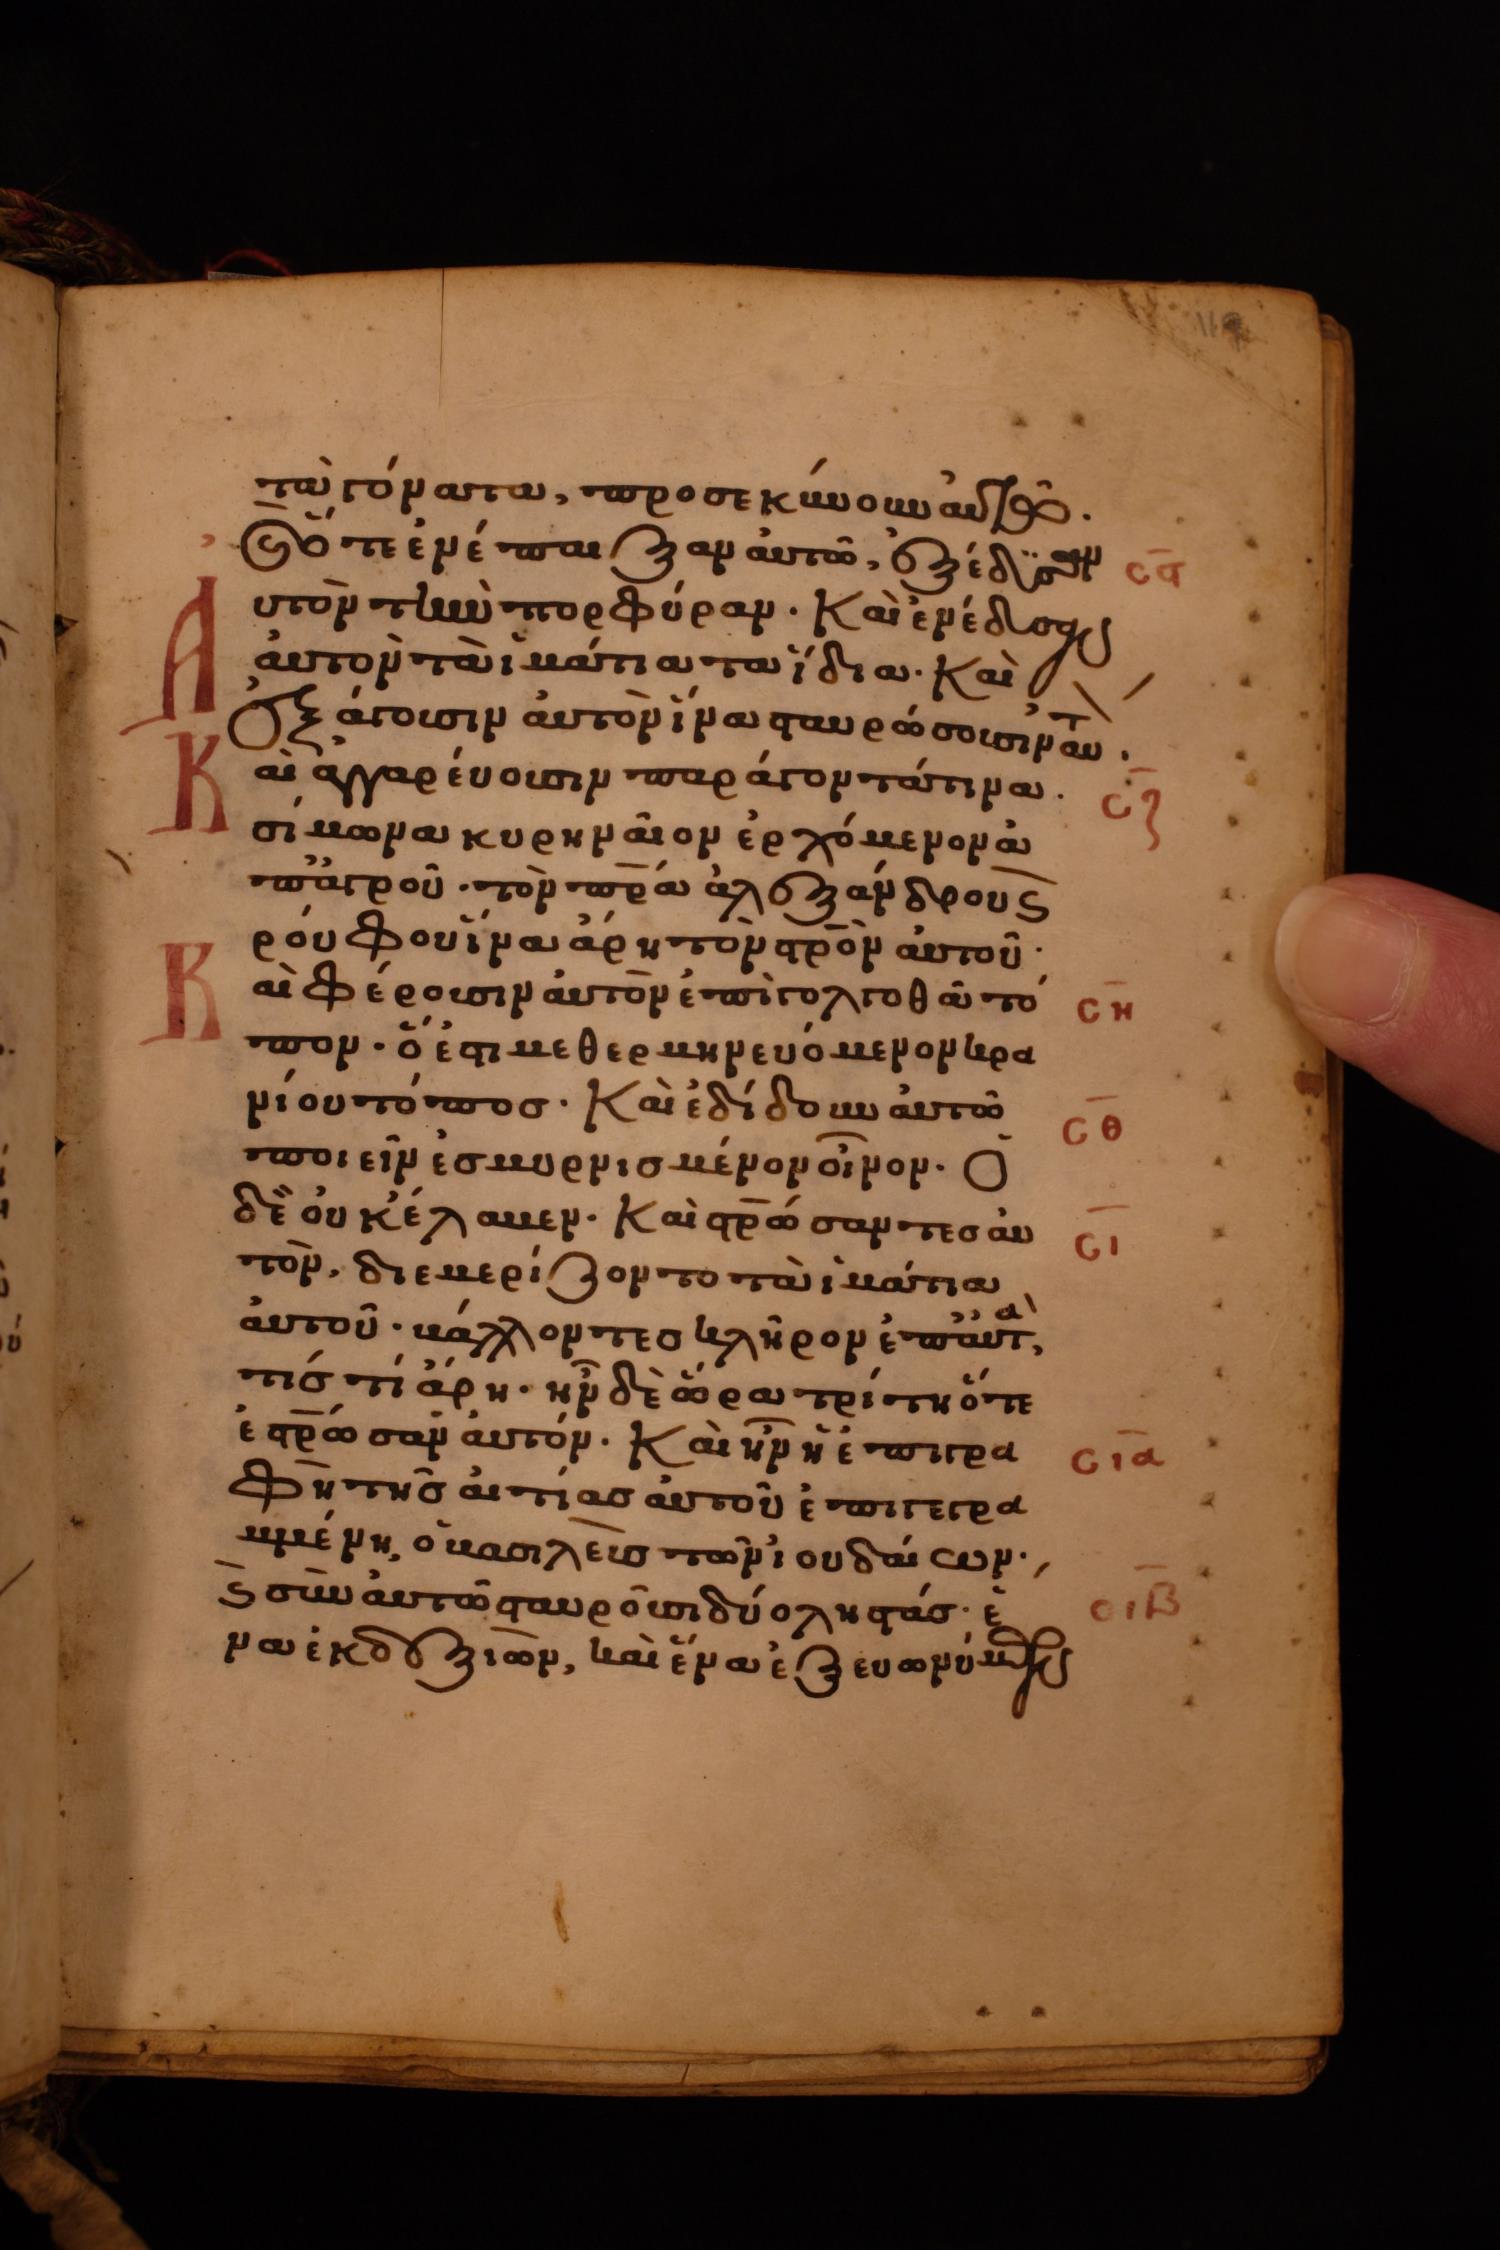 τὰ γόνατα, προσεκύνουν αὐτῷ.
καὶ ὅτε ἐνέπαιξαν αὐτῶ, ἐξέδυσαν
σϛ
υτὸν τὴν πορφύραν. Καὶ ἐνέδυσαν
αὐτὸν τὰ ἱμάτια τὰ ἴδια. Καὶ
ἐξάγουσιν αὐτὸν ἵνα σταυρώσουσιν αὐτ.
Κ αὶ ἀγγαρεύουσιν παράγοντά τινα.
σζ
σίμωνα κυρηναῖον ἐρχόμενον ἀ
π ἀγροῦ. τὸν πρ̅α ἀλεξάνδρου ϗ
ρούφου ἵνα ἄρη τὸν στρ̅ὸν αὐτοῦ.
Κ αὶ φέρουσιν αὐτὸν ἐπὶ γολγοθᾶ τό
ση
πον. ὅ ἐστι μεθερμηνευόμενον κρα
νίου τόπος. Καὶ ἐδίδουν αὐτῶ
σθ
ποιεῖν ἐσμυρνισμένον οἶνον. Ὁ
δὲ οὐκ ἔλαβεν. Καὶ στρ̅ώσαντες αὐ
σι
τὸν, διεμερίζοντο τὰ ἱμάτια
αὐτοῦ. βάλλοντες κλῆρον ἐπ αὐτὰ,
τίς τί ἄρη. ἦν δὲ ὥρα τρίτη ὅτε
ἐστρ̅ώσαν αὐτόν. Καὶ ἦν ἡ ἐπιγρα
σια
φὴ τῆς αἰτίας αὐτοῦ ἐπιγεγρα
μμένη, ὁ βασιλεὺς τῶν ἰουδαίων.
ϗ σὺν αὐτῶ σταυροῦσι δύο ληστάς. ἕ
σιβ
να ἐκ δεξιῶν, καὶ ἕνα ἐξ εὐωνύμων